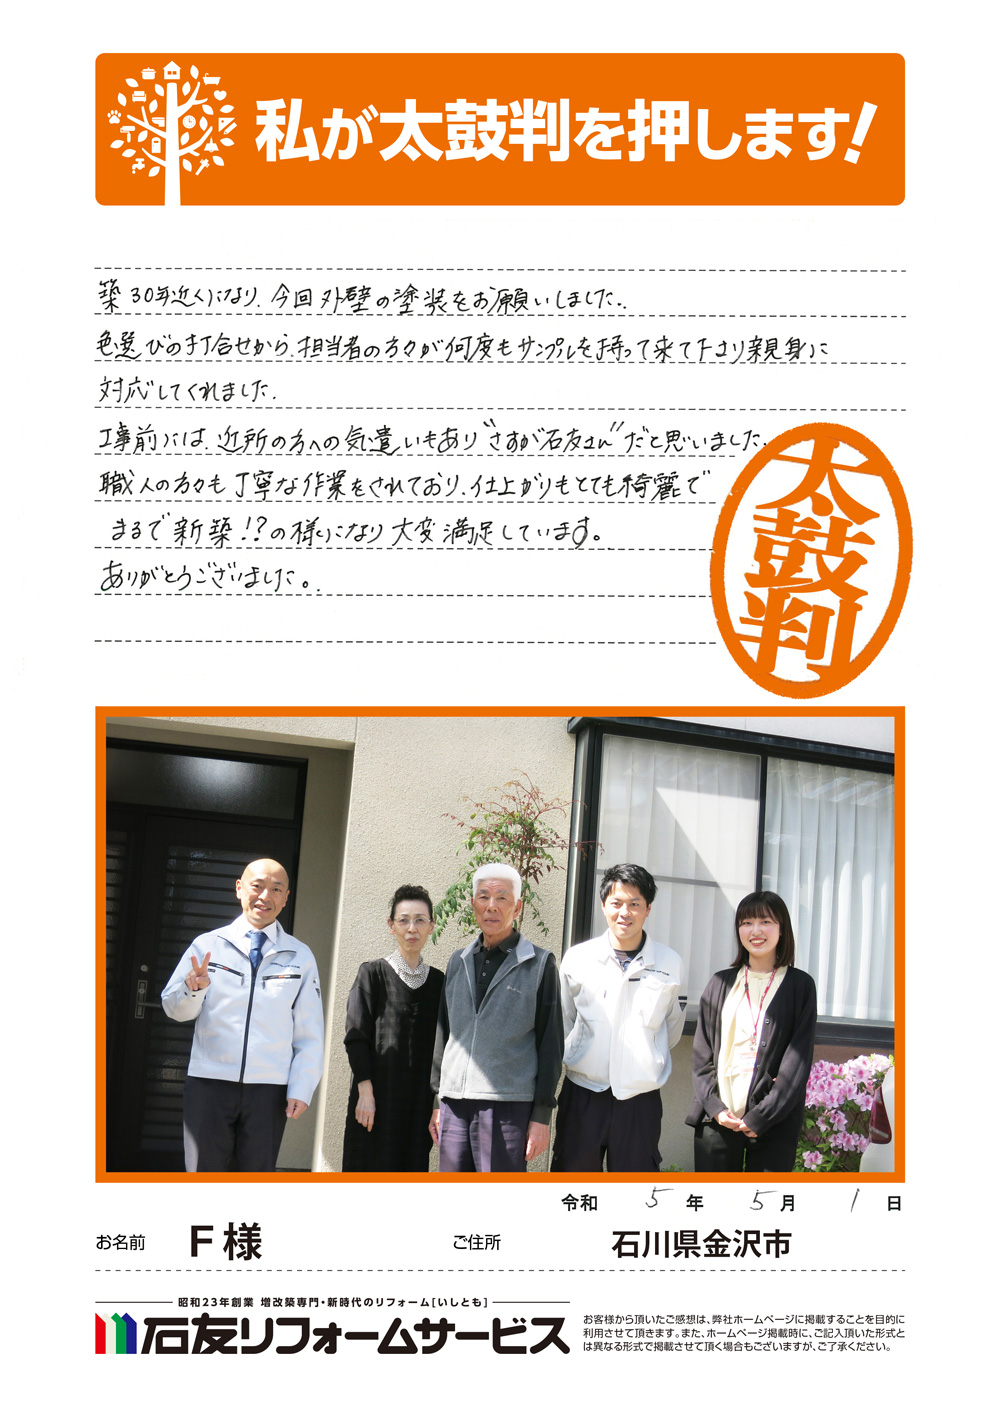 私が太鼓判を押します!
築30年近くになり、今回外壁の塗装をお願いしました。
色選びの打合せから、担当者の方々が何度もサンプルを持って来て下さり親身に
対応してくれました。
工事前には、近所の方への気遣いもあり"さすが石友さん"だと思いました。
職人の方々も丁寧な作業をされており、仕上がりもとても綺麗で
まるで新築!?の様になり大変満足しています。
ありがとうございました。
太鼓判
令和 5 年 5 月 1 日
お名前 F様 ご住所 石川県金沢市
昭和23年創業 増改築専門・新時代のリフォーム[いしとも]
石友リフォームサービス
お客様から頂いたご感想は、弊社ホームページに掲載することを目的に
利用させて頂きます。また、ホームページ掲載時に、ご記入頂いた形式と
は異なる形式で掲載させて頂く場合もございますが、ご了承ください。